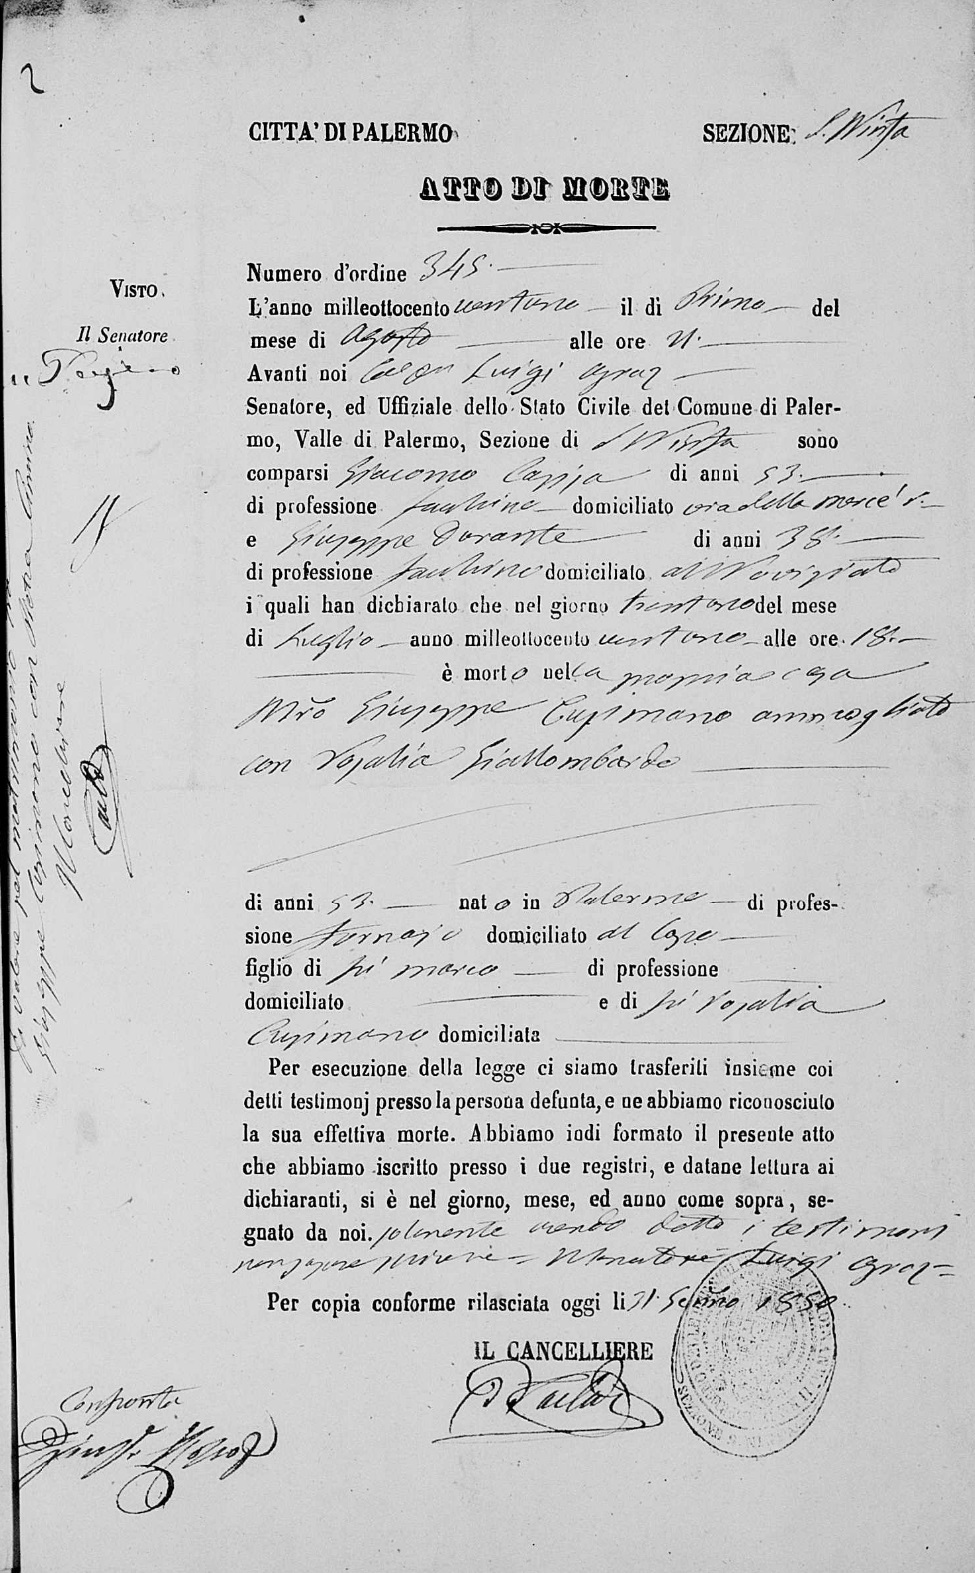 2
CITTA' DI PALERMO
SEZIONE: S. Ninfa
ATTO DI MORTE
Numero d'ordine 345.
L'anno milleottocento ventuno il dì Primo del
mese di Agosto alle ore 21.
Avanti noi Luigi Agraz
Senatore, ed Uffiziale dello Stato Civile del Comune di Paler-
mo, Valle di Palermo, Sezione di S Ninfa sono
comparsi Giacomo di anni 53.
di professione facchino domiciliato via della mercé
e Giuseppe Durante di anni 38.
di professione facchino domiciliato al Noviziato
i quali han dichiarato che nel giorno trentuno del mese
di Luglio anno milleottocento ventuno alle ore 18.
è morto nella propria casa
Mro Giuseppe Cusimano ammogliato
con Rosalia Giallombardo
di anni 53. nato in Palermo di profes-
sione fornajo domiciliato al Capo
figlio di fù marco di professione
domiciliato e di fù rosalia
Cusimano domiciliata
Per esecuzione della legge ci siamo trasferiti insieme coi
detti testimonj presso la persona defunta, e ne abbiamo riconosciuto
la sua effettiva morte. Abbiamo indi formato il presente atto
che abbiamo iscritto presso i due registri, e datane lettura ai
dichiaranti, si è nel giorno, mese, ed anno come sopra, se-
gnato da noi. solamente avendo detto i testimoni
non sapere scrivere = Il Senatore Luigi Agraz =
Per copia conforme rilasciata oggi li 31
IL CANCELLIERE
VISTO.
Il Senatore
Giuseppe Cusimano con
Il Cancelliere
Confrontata